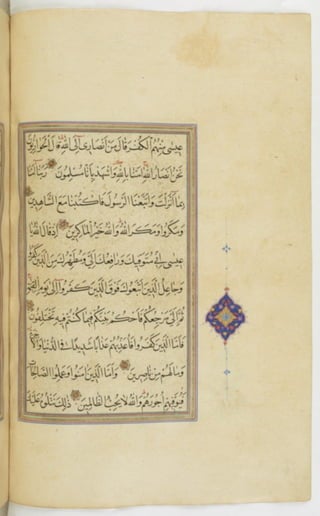 عيسى منهم الكفر قال من أنصاري إلى الله قال الحواريون
نحن أنصار الله آمنا بالله واشهد بأنا مسلمون ربنا آمنا
بما أنزلت واتبعنا الرسول فاكتبنا مع الشاهدين
ومكروا ومكر الله والله خير الماكرين إذ قال الله يا
عيسى إني متوفيك ورافعك إلي ومطهرك من الذين كفروا
وجاعل الذين اتبعوك فوق الذين كفروا إلى يوم القيمة
ثم إلي مرجعكم فأحكم بينكم فيما كنتم فيه تختلفون
فأما الذين كفروا فأعذبهم عذابا شديدا في الدنيا والآخرة
وما لهم من ناصرين وأما الذين آمنوا وعملوا الصالحات
فيوفيهم أجورهم والله لا يحب الظالمين ذلك نتلوه عليك